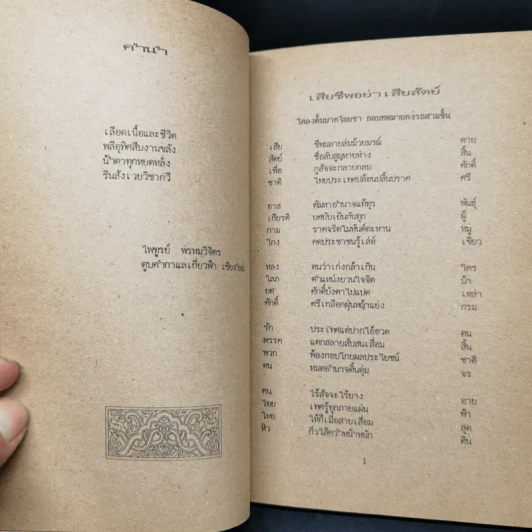 คำนำ
เลือดเนื้อและชีวิต
พลีอุทิศสืบงานขลัง
น้ำตาทุกหยดหลั่ง
รินสังเวยวิชากวี
ไพฑูรย์ พรหมวิจิตร
ตูบคำกาแลเกี๋ยวฟ้า เชียงใหม่
เสียชีพอย่าเสียสัตย์
โคลงดั้นบาทไตยรา กลบทหมายกงรถสามชั้น
เสีย ชีพมลายล่มม้วยมรณ์ ตาย
สัตย์ ซื่อสับสูญหายห่าง สิ้น
เพื่อ กูสัจจะกลายกลบ ศักดิ์
ชาติ ไทยประเทศปล้อนปลิ้นปราศ ศรี
ทาส ตัณหาอำนาจแท้ทูร พันธุ์
เกียรติ ยศยับเยินกับสุก ผู้
กาม ราคจริตโมหันต์ตะหาน หมู
โกง คดประชาชนรู้เล่ห์ เขี้ยว
หลง ตนว่าเก่งกล้าเกิน ใคร
โลภ ตำแหน่งยวนใจจิต บ้า
ยศ ศักดิ์บังตาไปแปด เหล่า
ศักดิ์ ศรีเกลือกฝุ่นหญ้าแย่ง กรม
รัก ประเทศแต่ปากไอ้อวด ตน
พรรค แตกสลายสับสนเสื่อม สิ้น
พวก พ้องกอบโกยผลประโยชน์ ชาติ
ตน หมดอำนาจดิ้นตุ่ม จร
คน ไร้สัจจะไร้ยาง อาย
ไทย เทศรู้ทุกภายแผ่น ฟ้า
ไทย ไท้ก็เมื่อสายเสื่อม สุด
หิว ก็วโค้คว่ำหน้าหมัก ดิ้น
1